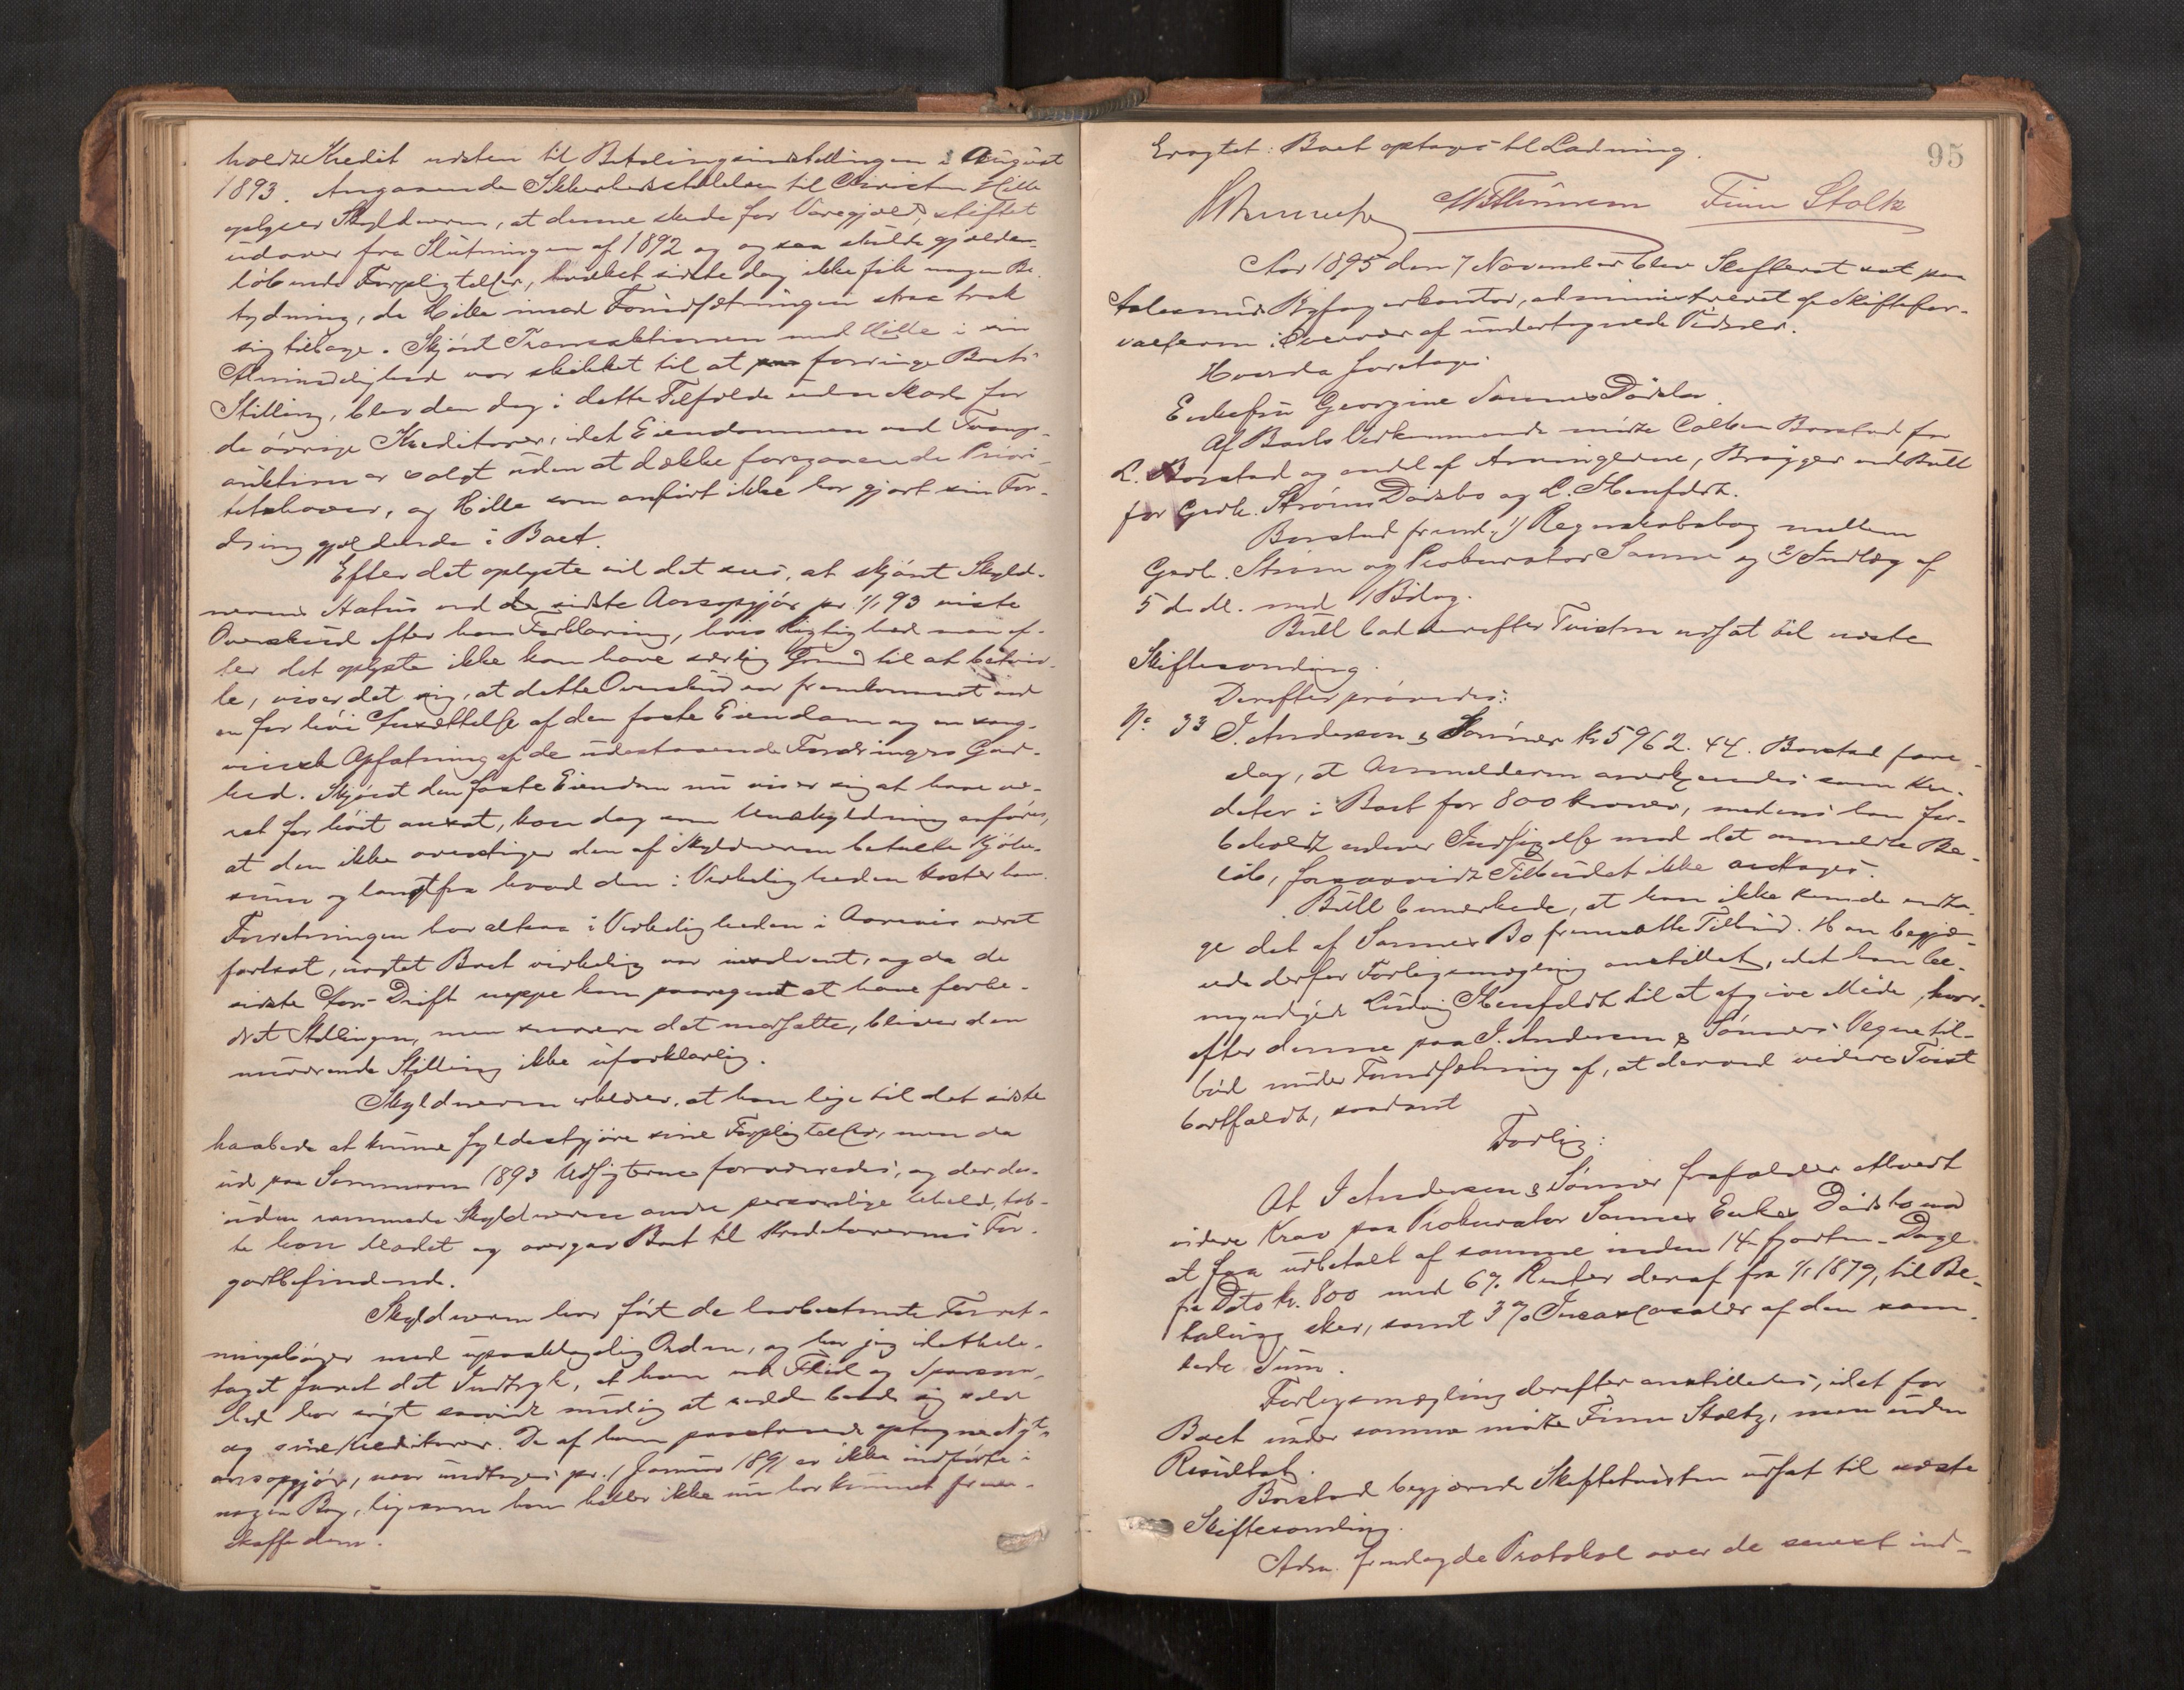 holdt Kredit udsten til Betalingsindstillingen i August
1893. Angaaende Sikkerhedsstillelsen til Christen Hille
oplyser Skyldneren, at denne skede for Varegjæld, stiftet
udover fra Slutningen af 1892 og ogsaa skulde gjælde
løbende Forpligtelser, hvilket sidste dog ikke fik nogen Be-
tydning, da Hille imod Forudsætningen strax trak
sig tilbage. Skjønt Transaktionen med Hille i sin
Almindelighed var skikket til at forringe Boets
Stilling, blev den dog i dette Tilfælde uden Skade for
de øvrige Kreditorer, idet Eiendommen ved Tvangs-
auktion er solgt uden at dække foregaaende Priori-
tetshaver, og Hille som anført ikke har gjort sin For-
dring gjældende i Boet.
Efter det oplyste vil det sees, at skjønt Skyld-
nerens Status ved de sidste Aarsopgjør pr. 1/1 93 viste
Overskud efter hans Forklaring, hvis Rigtighed man ef-
ter det oplyste ikke kan have særlig Grund til at betviv-
le, viser det sig, at dette Overskud var fremkommet ved
en for høi Ansættelse af den faste Eiendom og en sang-
vinsk Opfatning af de udestaaende Fordringers God-
hed. Skjønt den faste Eiendom nu viser sig at have væ-
ret for høit ansat, kan dog som Undskyldning anføres,
at den ikke overstiger den af Skyldneren betalte Kjøbe-
sum og langt fra hvad den i Virkeligheden koster ham.
Forretningen har altsaa i Virkeligheden i Aarevis været
fortsat, uagtet Boet virkelig var insolvent, og da de
sidste Aars Drift neppe kan paaregnes at have forbe-
dret Stillingen, men snarere det modsatte, bliver den
nuværende Stilling ikke uforklarlig.
Skyldneren erklærer, at han lige til det sidste
haabede at kunne fyldestgjøre sine Forpligtelser, men da
ud paa Sommeren 1893 Udsigterne forværredes, og der des-
uden rammede Skyldneren andre personlige Uheld, tab-
te han Modet og overgav Boet til Kreditorernes For-
godtbefindende.
Skyldneren har ført de lovbestemte Forret-
ningsbøger med upaaklagelig Orden, og har jeg idethele-
taget faaet det Indtryk, at han ved Flid og Sparsom-
hed har søgt saavidt mulig at redde baade sig selv
og sine Kreditorer. De af ham paastaaede optagne Nyt-
aarsopgjør, naar undtages pr. 1 Januar 1891 er ikke indførte i
nogen Bog, ligesom han heller ikke nu har kunnet frem-
skaffe dem.
95
Eragtet: Boet optages til Ladning.
Finn Stoltz
Aar 1895 den 7 November blev Skifteret sat paa
Aalesunds Byfogedkontor, administreret af Skiftefor-
valteren i Overvær af undertegnede Vidner.
Hvorda foretoges
Enkefru Georgine Sannes Dødsbo.
Af Boets Vedkommende mødte Borstad for
L. Borstad og endel af Arvingerne, Brygger ved Bull
for Gerh. Strøms Dødsbo og L. Stenfeldt.
Borstad freml. 1/ Regnskabsbog mellem
Gerh. Strøm og Prokurator Sanne og 2/ Indlæg af
5 ds. Md. med 1 Bilag.
Bull bad derefter Tvisten udsat til næste
Skiftesamling.
Derefter prøvedes:
No. 33 I. Andersen & Sønner Kr 5962.44. Borstad fore-
slog, at Anmelderen anerkjendes som Kre-
ditor i Boet for 800 Kroner, medens han for-
beholdt enhver Indsigelse mod det anmeldte Be-
løb, forsaavidt Tilbudet ikke antages.
Bull bemærkede, at han ikke kunde modta-
ge det af Sannes Bo fremsatte Tilbud. Han begjæ-
rede derfor Forligsmægling anstillet, idet han be-
myndigede Ludvig Stenfeldt til at afgive Møde, hvor-
efter denne paa I. Andersen & Sønners Vegne til-
bød under Forudsætning af, at derved videre Tvist
bortfaldt, saadant
Forlig:
At I Andersen & Sønner frafalder ethvert
videre Krav paa Prokurator Sannes Enkes Dødsbo mod
at faa udbetalt af samme inden 14 fjorten Dage
fra Dato Kr. 800 med 6% Renter deraf fra 1/1 1879, til Be-
taling sker, samt 3% Incassosalær af den sam-
lede Sum.
Forligsmægling derefter anstilledes, idet for
Boet under samme mødte Finn Stoltz, men uden
Resultat.
Borstad begjærede Skiftetvisten udsat til næste
Skiftesamling.
Adm. fremlagde Protokol over de senest ind-